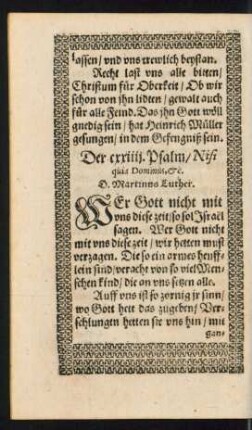 lassen / vnd vns trewlich beystan.
Recht last vns alle bitten /
Christum für Oberkeit / Ob wir
schon von ihn lidten / gewalt auch
für alle Feind. Das ihn Gott wöll
gnedig sein / hat Heinrich Müller
gesungen / in dem Gefengniß sein.
Der cxxiiij. Psalm / Nisi
quia Dominus, &c.
D. Martinus Luther.
WEr Gott nicht mit
vns diese zeit / so sol Israel
sagen. Wer Gott nicht
mit vns diese zeit / wir hetten must
verzagen. Die so ein armes heuff-
lein sind / veracht von so viel Men-
schen kind / die an vns setzen alle.
Auff vns ist so zornig jr sinn /
wo Gott hett das zugeben / Ver-
schlungen hetten sie vns hin / mit
gan-